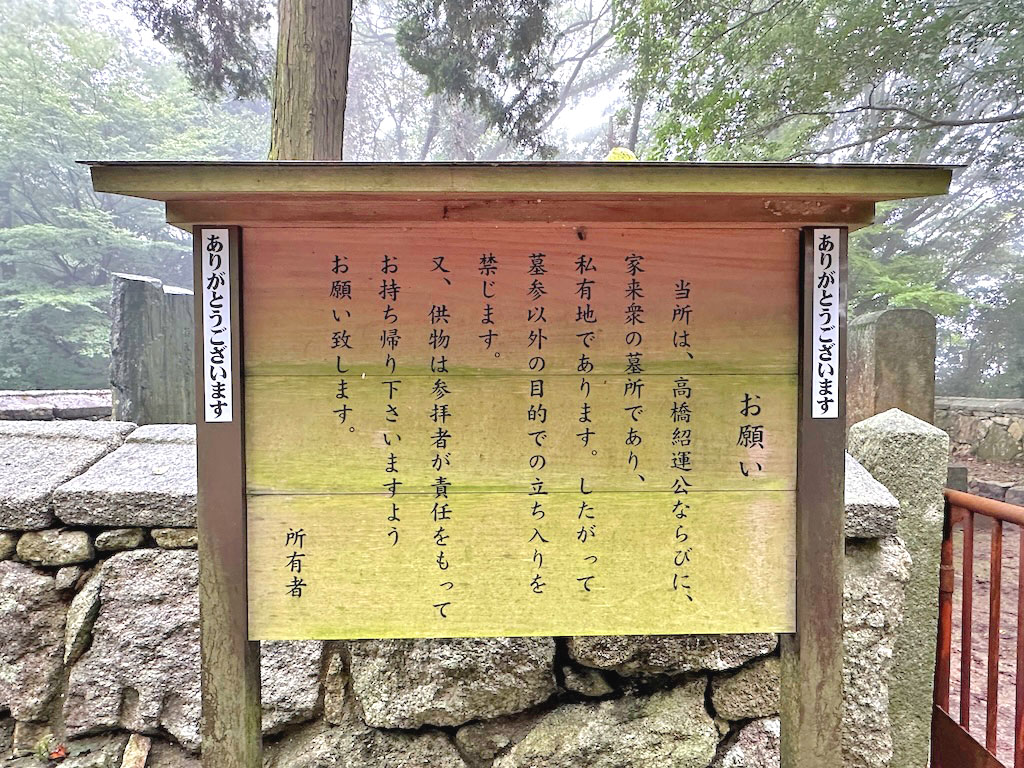 ありがとうございます
お願い
当所は、高橋紹運公ならびに、
家来衆の墓所であり、
私有地であります。したがって
墓参以外の目的での立ち入りを
禁じます。
又、供物は参拝者が責任をもって
お持ち帰り下さいますよう
お願い致します。
所有者
ありがとうございます